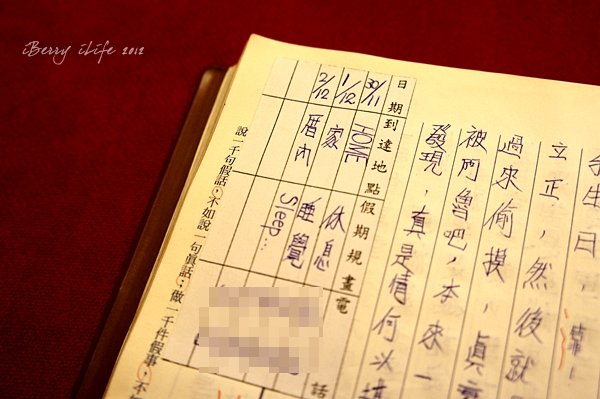 iBerry iLife 2012
生日，靠
立正，然後就
過來偷摸，真
被阿魯吧，本來一
發現，真是情何以
日期 到達地點 假期規畫 電話
30/11 HOME 休息
1/12 家 睡覺
2/12 厝內 Sleep...
說一千句假話，不如說一句眞話；做一千件假事，不